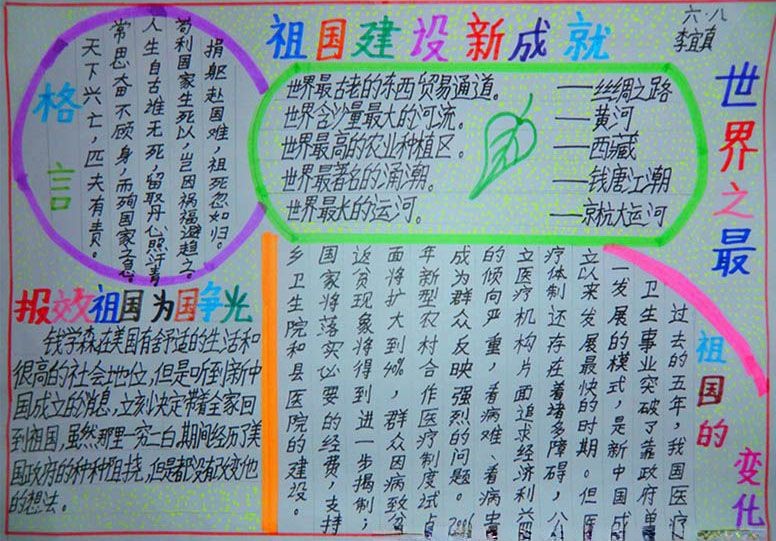 祖国建设新成就
六·八
李宜真
格言
捐躯赴国难，视死忽如归。
苟利国家生死以，岂因祸福避趋之。
人生自古谁无死，留取丹心照汗青
常思奋不顾身，而殉国家之急。
天下兴亡，匹夫有责。
世界最古老的东西贸易通道。——丝绸之路
世界含沙量最大的河流。——黄河
世界最高的农业种植区。——西藏
世界最著名的涌潮。——钱唐江潮
世界最长的运河。——京杭大运河
世界之最
报效祖国为国争光
钱学森在美国有舒适的生活和
很高的社会地位，但是听到新中
国成立的消息，立刻决定带着全家回
到祖国，虽然那里一穷二白，期间经历了美
国政府的种种阻挠，但是都没有改变他
的想法。
祖国的变化
过去的五年，我国医疗
卫生事业突破了靠政府单
一发展的模式，是新中国成
立以来发展最快的时期。但医
疗体制还存在着诸多障碍，公
立医疗机构片面追求经济利
的倾向严重，看病难、看病贵
成为群众反映强烈的问题。2006
年新型农村合作医疗制度试点
面将扩大到40%，群众因病致贫
返贫现象将得到进一步揭制；
国家将落实必要的经费，支持
乡卫生院和县医院的建设。